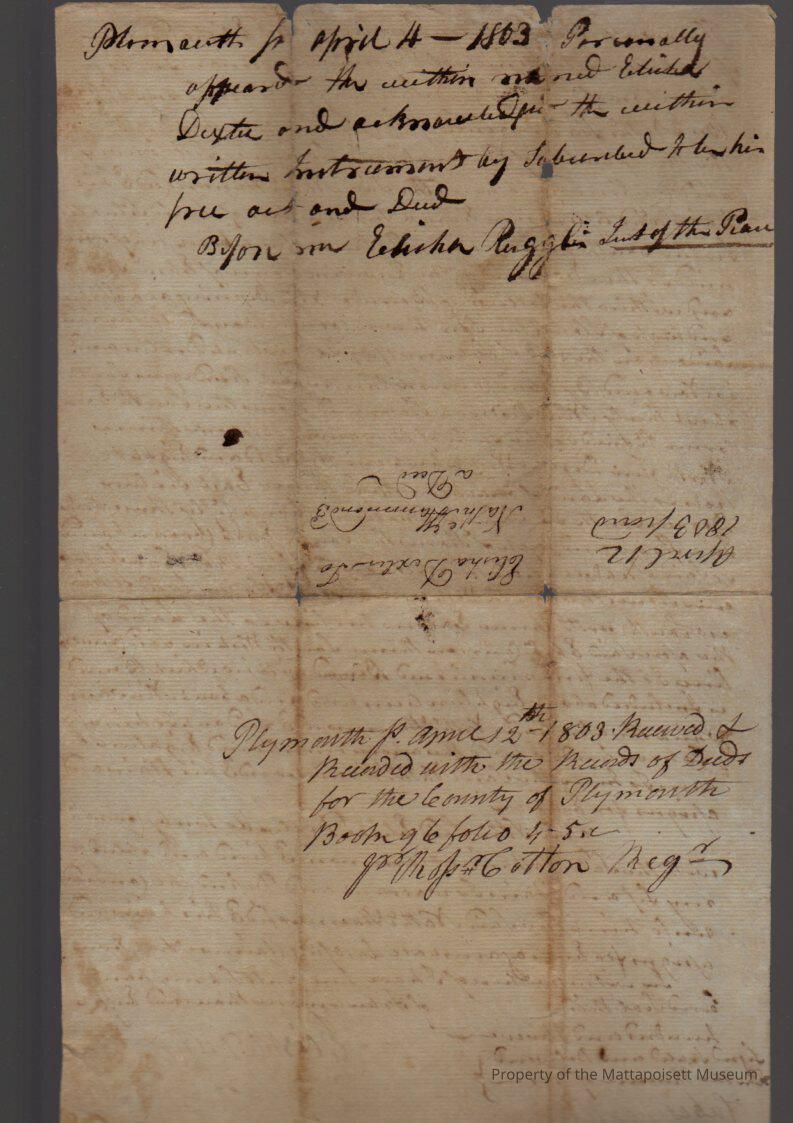 Plomouth ss april 4 — 1803 Personally
appeard the within named Elisha
Dexter and acknowledged the within
written Instrument by Subscribed to be his
free act and Deed
Before me Elisha Ruggles Just of the Peace
Elisha Dexter to
Hammond 3
a Deed
April 12
1803 recd
Plymouth ss. April 12th 1803 Received &
Recorded with the Records of Deeds
for the County of Plymouth
Book 96 folio 4-5
Cotton Regr
Property of the Mattapoisett Museum